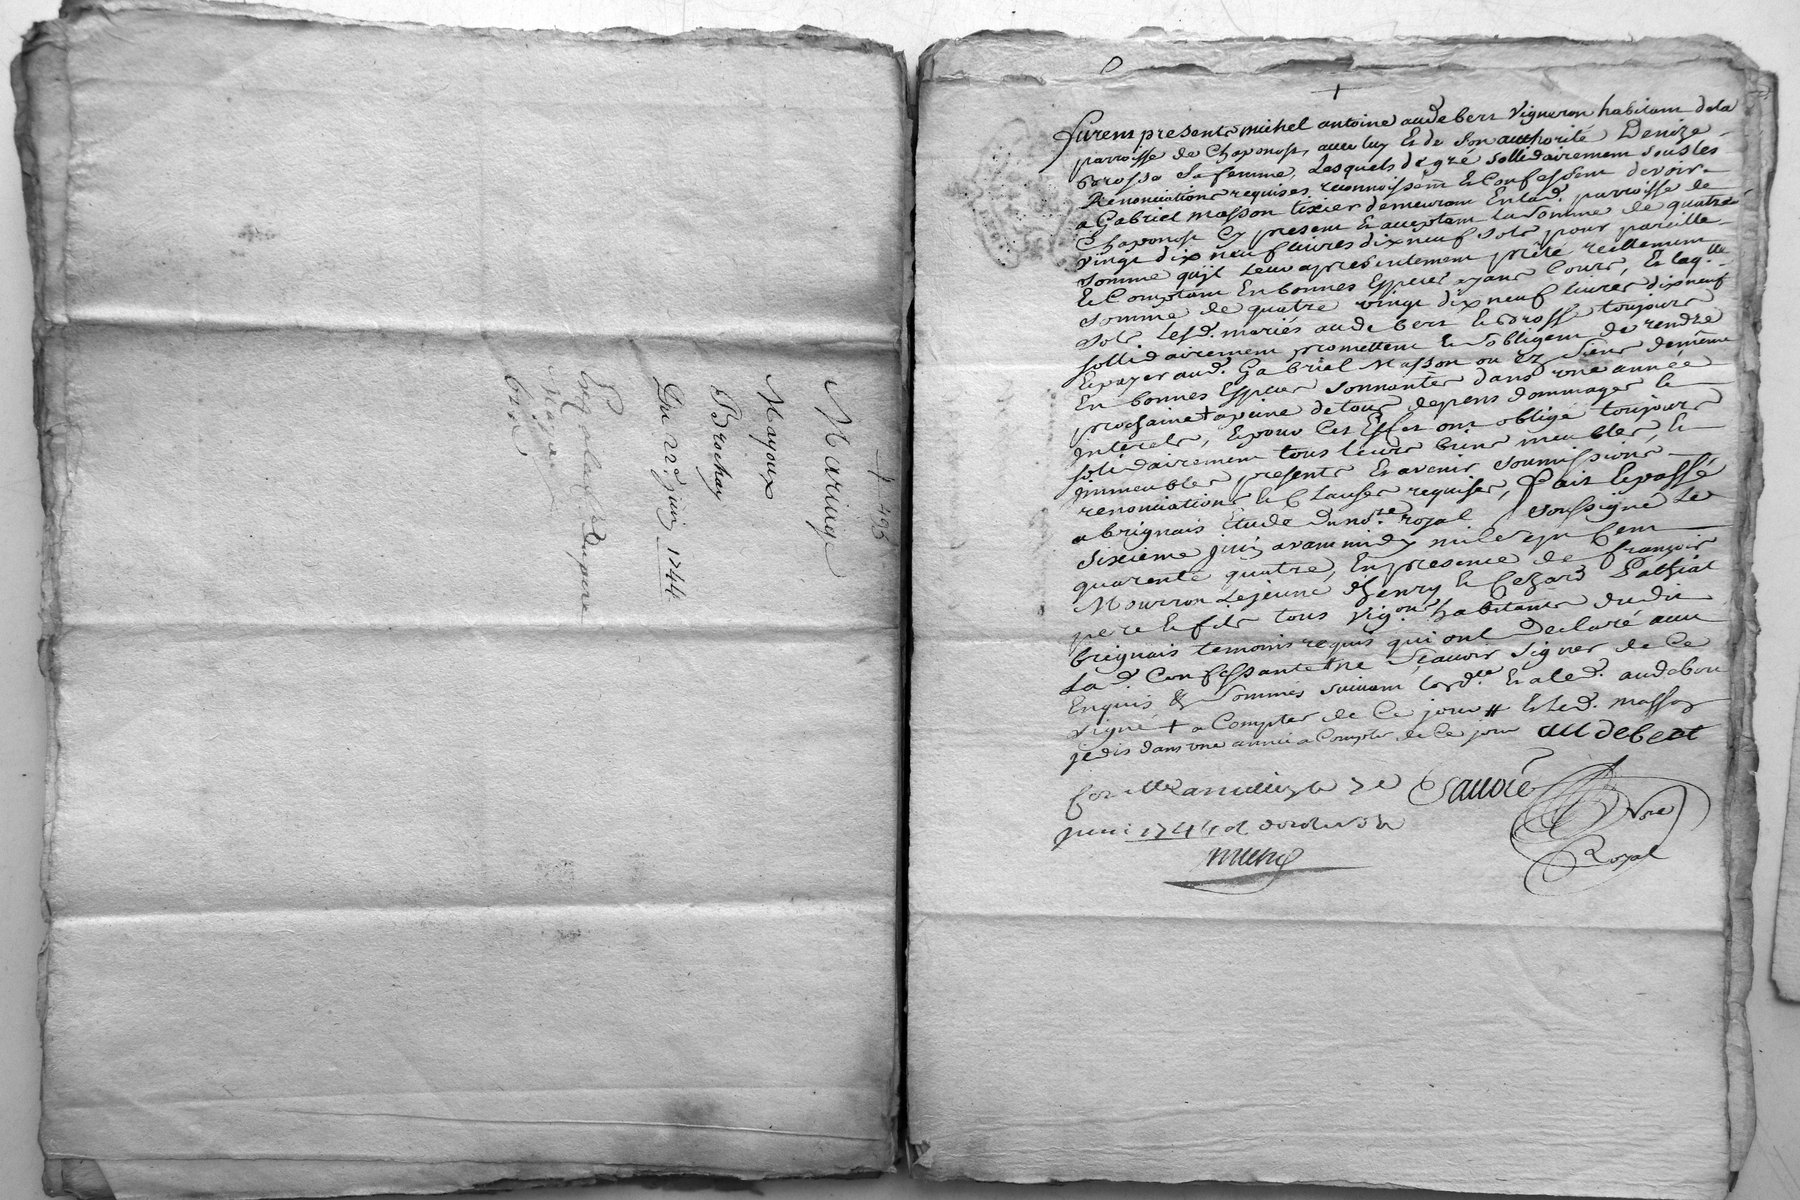 + 496
Mariage
Mayoux
Brochay
Du 22e juin 1744
+
furent presents michel antoine audebert Vigneron habitant dela
parroisse de Chaponost, avec luy Et de son authorité Denize
brossa sa femme, Lesquels de gré sollidairement sous les
Renonciations requises reconnoissent Et Confessent devoir
a Gabriel masson tixier demeurant En lad. parroisse de
Chaponost Cy present Et acceptant La somme de quatre
vingt dix neuf livres dix neuf sols pour pareille
somme qu'jl Leur a presentement prêté réellement
Et Comptant En bonnes Especes ayant Cours, Et laq.lle
somme de quatre vingt dix neuf livres dix neuf
sols Lesd. mariés audebert Et brossa toujours
sollidairement promettent Et s'obligent de rendre
Et payer aud. Gabriel Masson ou Ez siens demême
En bonnes Especes sonnantes dans une année
prochaine + a peine de tous depens dommages Et
interets, Et pour Cet Effet ont obligé toujours
solidairement tous leurs biens meubles, Et
jmmeubles presents Et avenir soumissions
renonciations Et Clauses requises, fait Et passé
a brignais Etude du no.re royal soussigné Le
sixieme juin avant midy mil sept Cent
quarente quatre, En presence de françois
Mourron Lejeune Henry Et Cezard Pathiat
pere Et fils tous vig.ons habitants dudit
brignais temoins requis qui ont declaré avec
La d. Confessante ne sçavoir signer de Ce
Enquis & sommés suivant l'ord.ce Et a led. audebert
signé + a Compter de Ce jour # Et led. masson
je dis dans une année a Compter de Ce jour audebert
Sauoie
Nore
Royal
juin 1744